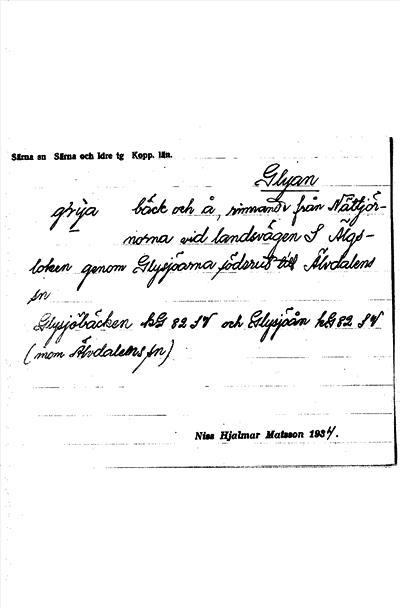 Särna sn Särna och Idre tg Kopp. län.
Glyan
grya bäck och å, rinnande från Nättjör-
norna vid landsvägen S Älgs-
loken genom Glysjöarna söderut till Älvdalens
sn
Glysjöbäcken kG 82 SV och Glysjöån kG 82 SV
(inom Älvdalens sn)
Niss Hjalmar Matsson 1934.